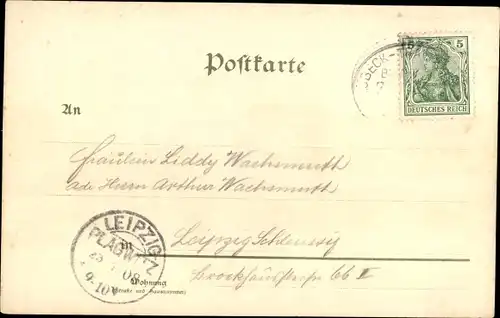 Postkarte
5
DEUTSCHES REICH
An
Fräulein Liddy Wachsmuth
Herrn Arthur Wachsmuth
LEIPZIG
PLAGWITZ
08
9-10V
in
Leipzig Schleussig
Brockhausstrasse 66 II
Wohnung
(Straße und Hausnummer)